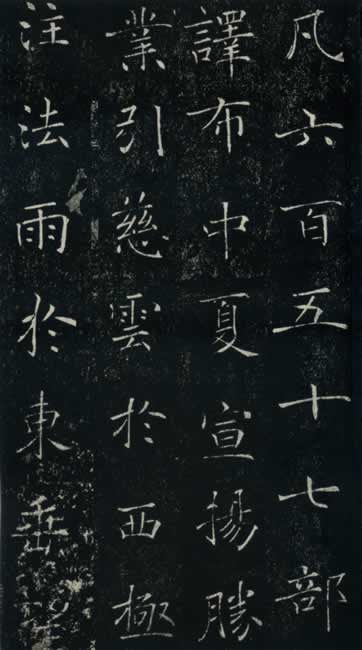 凡六百五十七部
譯布中夏宣揚勝
業引慈雲於西極
注法雨於東垂